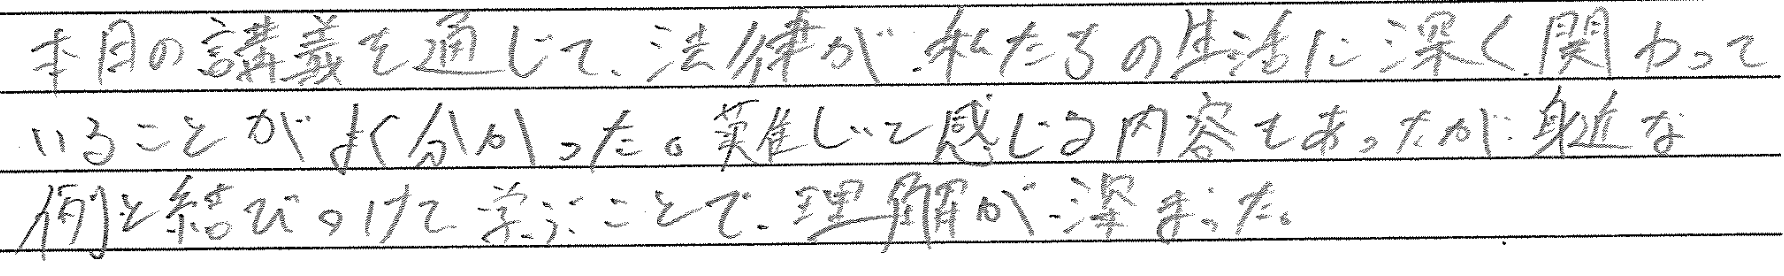 本日の講義を通じて、法律が、私たちの生活に深く関わって
いることがよく分かった。難しいと感じる内容もあったが、身近な
例と結びつけて学ぶことで、理解が深まった。